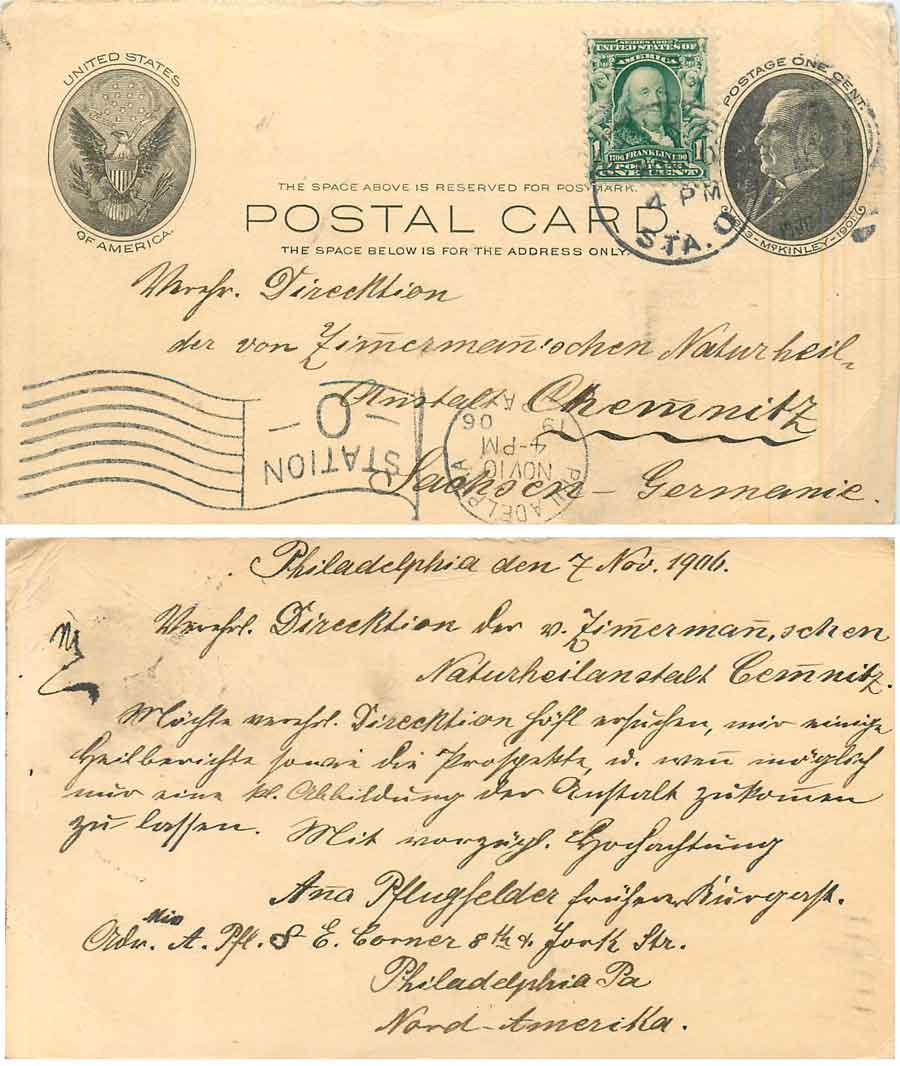 UNITED STATES
OF AMERICA.
SERIES 1902
UNITED STATES OF
AMERICA
1706 FRANKLIN 1790
1 POSTAGE 1
ONE CENT
POSTAGE ONE CENT.
1843-McKINLEY-1901
THE SPACE ABOVE IS RESERVED FOR POSTMARK.
POSTAL CARD.
THE SPACE BELOW IS FOR THE ADDRESS ONLY.
4 PM
STA. O
Verehr. Direcktion
der von Zim̅erman̅'schen Naturheil-
Anstalt Chem̅nitz
Sachsen - Germanie.
STATION
- O -
PHILADELPHIA PA
NOV 10
4-PM
19 06
Philadelphia den 7 Nov. 1906.
Verehrl. Direcktion der v. Zim̅erman̅,schen
Naturheilanstalt Cem̅nitz.
Möchte verehrl. Direcktion höfl ersuchen, mir einige
Heilberichte sowie die Prospekte, u. wen̅ möglich
nur eine kl. Abbildung der Anstalt zukom̅en
zu lassen. Mit vorzügl. Hochachtung
An̅a Pflugfelder früherer Kurgast.
Adr. Miss A. Pfl. S E. Corner 8th & Jork Str.
Philadelphia Pa
Nord-Amerika.